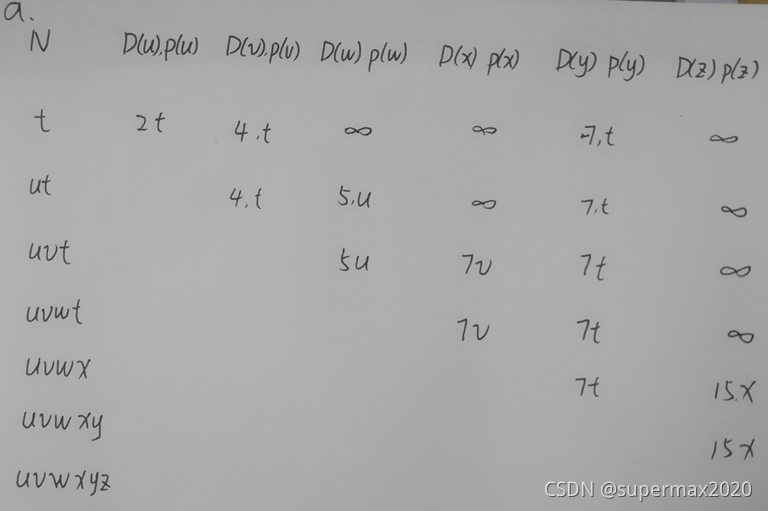 a.
N D(u).p(u) D(v).p(v) D(w) p(w) D(x) p(x) D(y) p(y) D(z) p(z)
t 2t 4.t ∞ ∞ -7,t ∞
ut 4.t 5.u ∞ 7.t ∞
uvt 5u 7v 7t ∞
uvwt 7v 7t ∞
uvwx 7t 15.x
uvwxy 15x
uvwxyz
CSDN @supermax2020